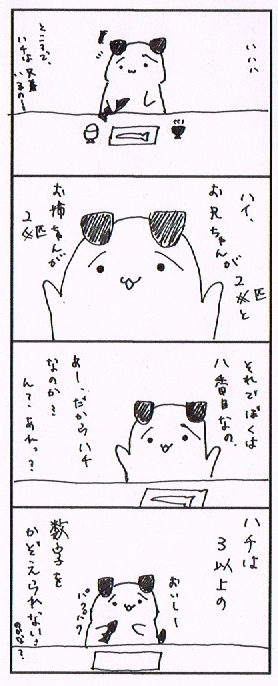 いいい
ところで、
ハチは兄弟
いるの〜
ハイ、
お兄ちゃんが
2匹と
お姉ちゃんが
2匹
それでぼくは
八番目なの。
あー、だからハチ
なのか?
んて、あれっ?
ハチは
3以上の
数字を
かぞえられない。
おいしー
パクパク